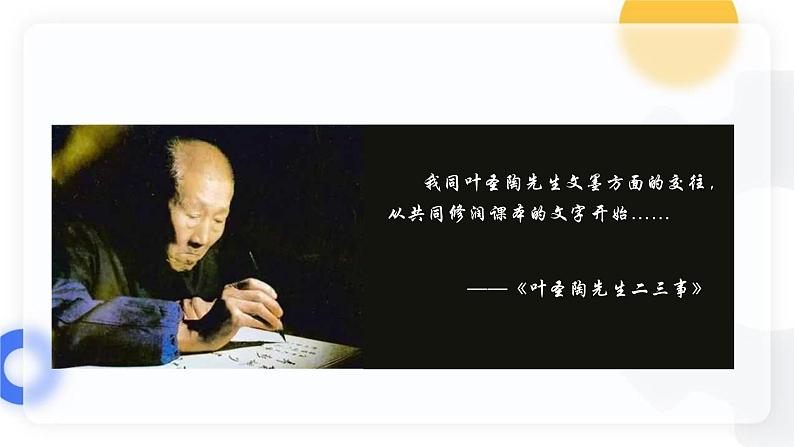 我同叶圣陶先生文墨方面的交往，
从共同修润课本的文字开始……
——《叶圣陶先生二三事》